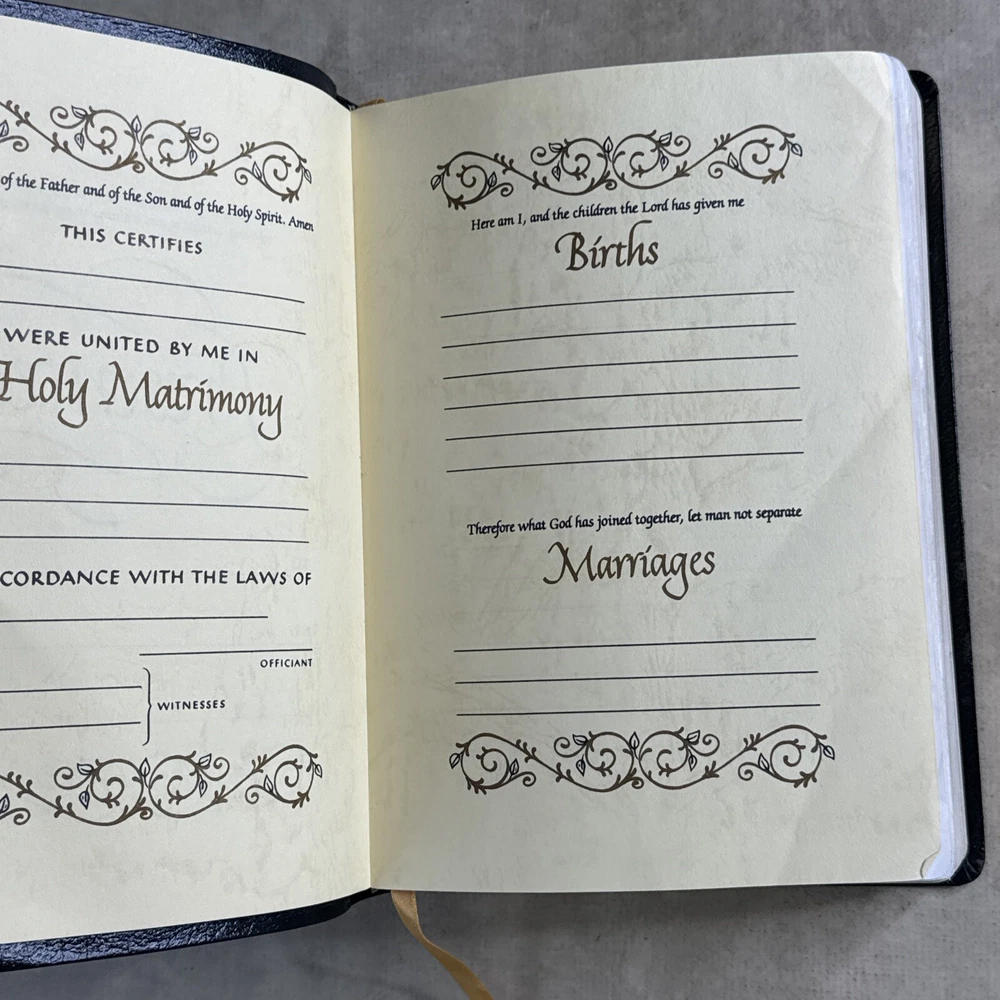 of the Father and of the Son and of the Holy Spirit. Amen
THIS CERTIFIES
WERE UNITED BY ME IN
Holy Matrimony
CORDANCE WITH THE LAWS OF
OFFICIANT
WITNESSES
Here am I, and the children the Lord has given me
Births
Therefore what God has joined together, let man not separate
Marriages